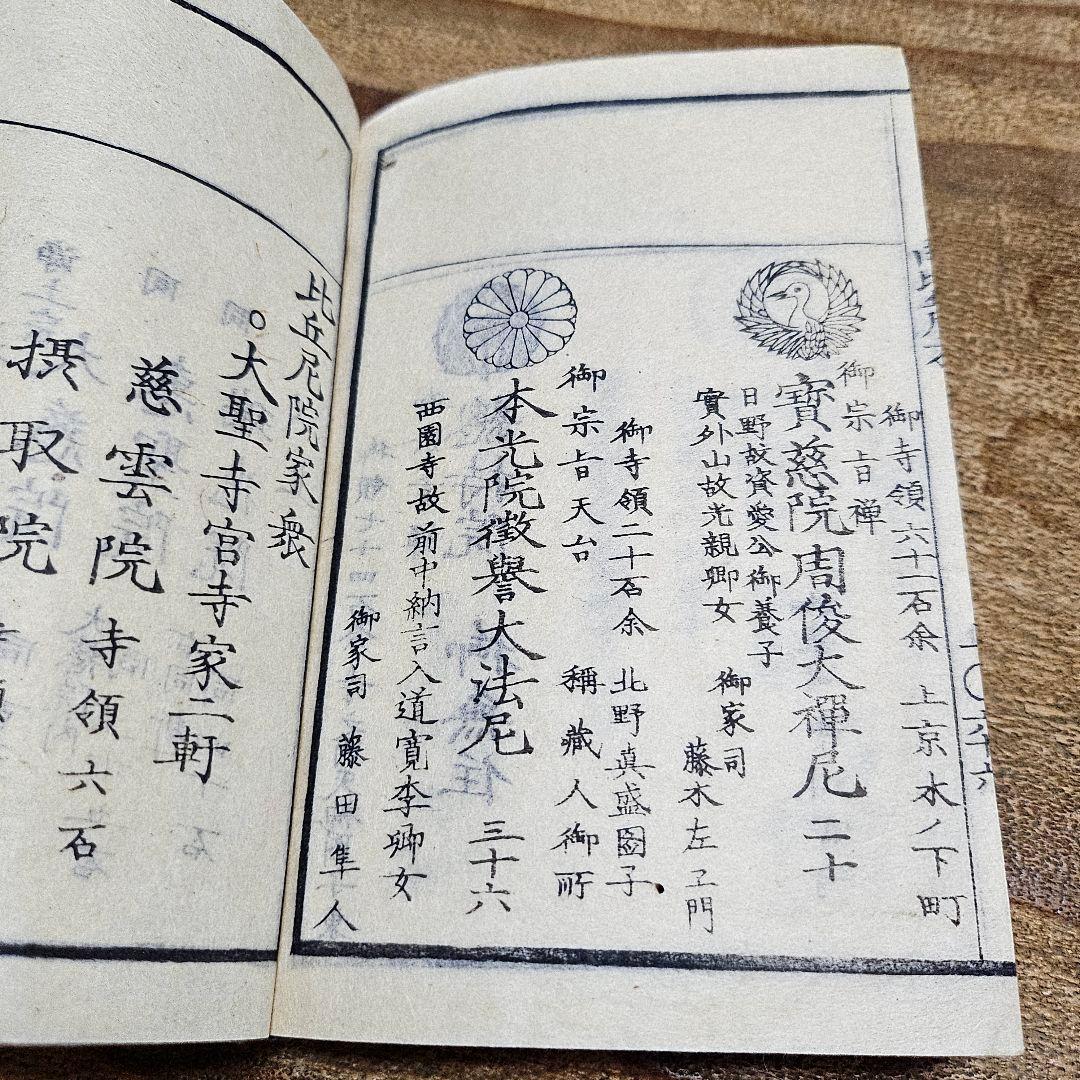 御寺領六十二石余 上京木ノ下町
御宗旨禅
寶慈院周俊大禪尼 二十
日野故資愛公御養子
實外山故光親卿女
御家司 藤木左ヱ門
御寺領二十石余 北野真盛図子
御宗旨天台 稱蔵人御所
本光院徴譽大法尼 三十六
西園寺故前中納言入道寛季卿女
御家司 藤田隼人
比丘尼院家衆
○大聖寺宮寺家二軒
慈雲院 寺領六石
摂取院